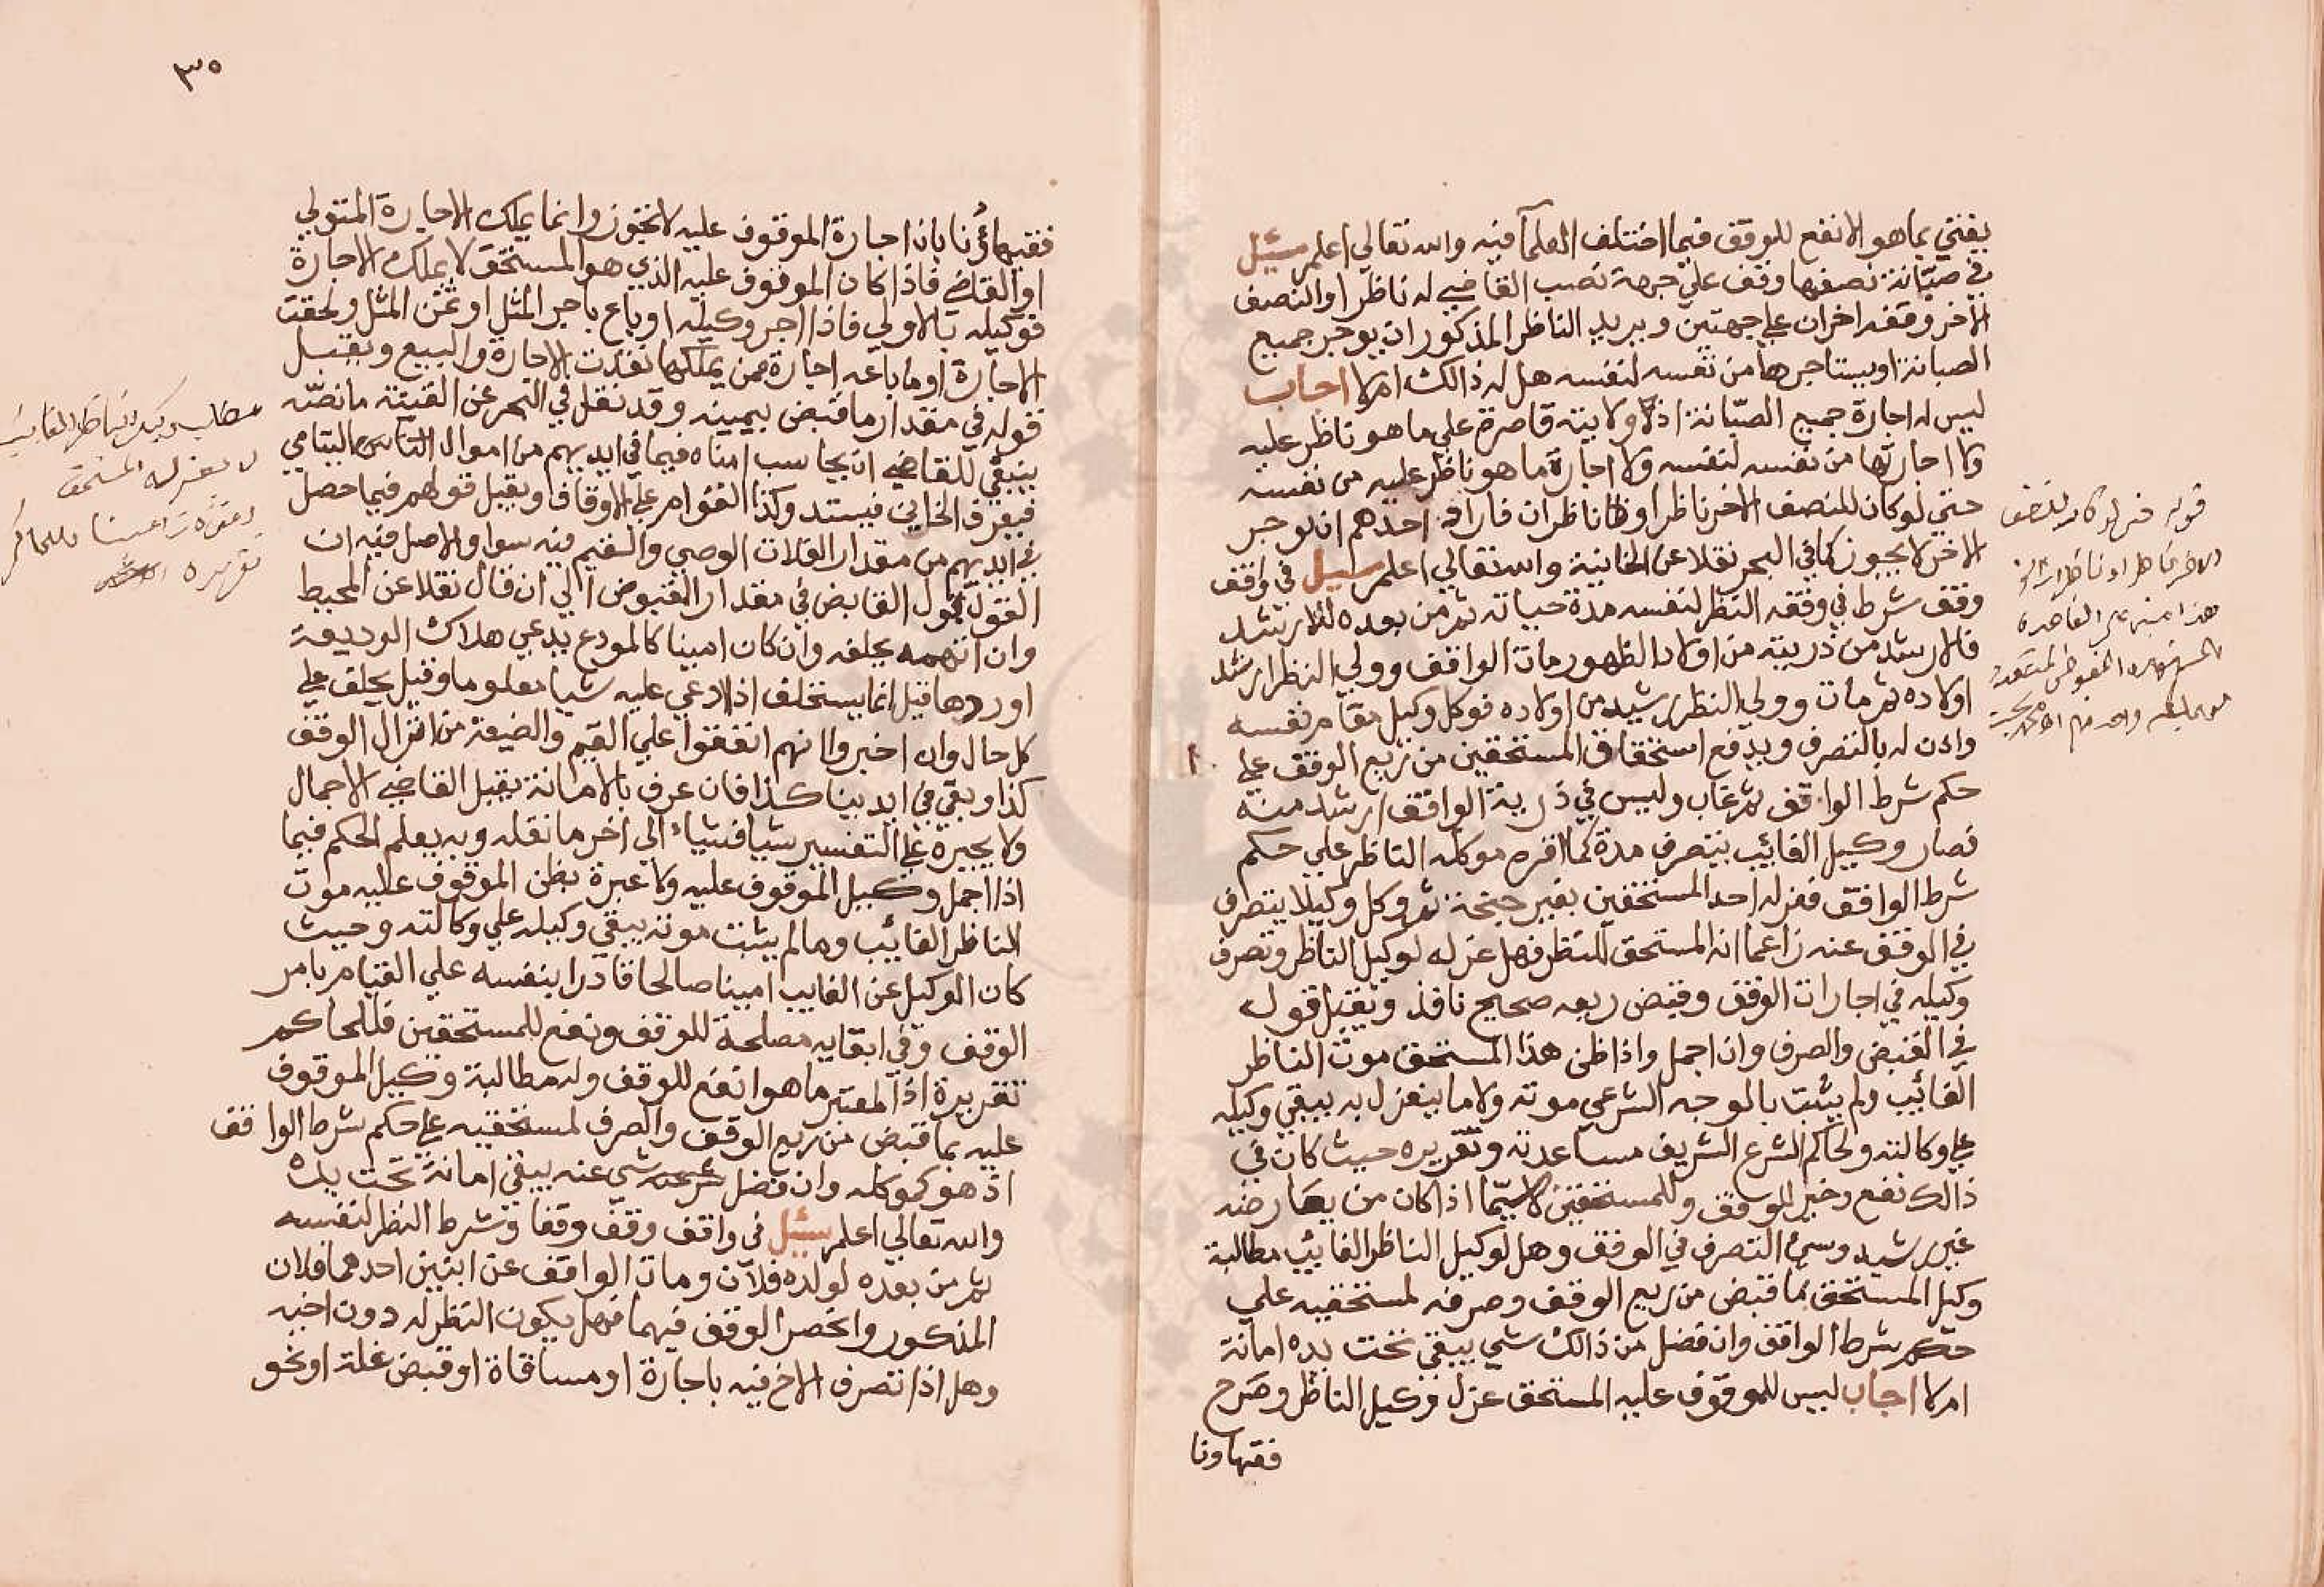 يفتي بما هو الانفع للوقف فيما اختلف العلمآ فيه والله تعالي اعلم سئيل
في صبانة نصفها وقف علي جهة نصب القاضي له ناظرا والنصف
الاخر وقفه اخران علي جهتين ويريد الناظر المذكور ان يوجر جميع
الصبانة او يستاجرها من نفسه لنفسه هل له ذالك ام لا اجاب
ليس له اجارة جميع الصبّانة اذ لا ولايته قاصرة علي ما هو ناظر عليه
ولا اجارتها من نفسه لنفسه ولا اجارة ما هو ناظر عليه من نفسه
حتي لو كان للنصف الاخر ناظر او ناظران فاراد احدهم ان يوجر
الاخر لا يجوز كما في البحر نقلا عن الخانية والله تعالي اعلم سيل في واقف
وقف شرط في وقفه النظر لنفسه مدة حياته ثم من بعده للارشد
فالارشد من ذريته من اولاد الظهور مات الواقف وولي النظر ارشد
اولاده ثم مات وولي النظر رشيد من اولاده فوكل وكيل مقام نفسه
واذن له بالتصرف ويدفع استحقاق المستحقين من ريع الوقف علي
حكم شرط الواقف ثم غاب وليس في ذرية الواقف ارشد منه
فصار وكيل الغائيب يتصرف مدة كما اقره موكله الناظر علي حكم
شرط الواقف فعزله احد المستحقين بغير جنحة ثم وكل وكيلا يتصرف
في الوقف عنه زاعما انه المستحق للنظر فهل عزله لوكيل الناظر وتصرف
وكيله في اجارات الوقف وقبض ريعه صحيح نافذ وتقبل قوله
في القبض والصرف وان اجمل واذا ظن هذا المستحق موت الناظر
الغائيب ولم يثبت بالوجه الشرعي موته ولا ما ينعزل به يبقي وكيله
علي وكالته ولحاكم الشرع الشريف مساعدته وتقريره حيث كان في
ذالك نفع وخير للوقف وللمستحقين لا سيما اذا كان من يعارضه
غير رشيد وسئ التصرف في الوقف وهل لوكيل الناظر الغائيب مطالبة
وكيل المستحق بما قبض من ريع الوقف وصرفه لمستحقيه علي
حكم شرط الواقف وان فضل من ذالك شي يبقي تحت يده امانة
ام لا اجاب ليس للموقوف عليه المستحق عزل وكيل الناظر وصرح
فقهاونا
قوله حتي لو كان للنصف
الاخر ناظر او ناظران الخ
٣٥
فقهاؤنا بان اجارة الموقوف عليه لا تجوز وانما يملك الاجارة المتولي
او القاضي فاذا كان الموقوف عليه الذي هو المستحق لا يملك الاجارة
فوكيله بالاولي فاذا اجر وكيله او باع باجر المثل او ثمن المثل ولحقت
الاجارة او ما باعه اجارة ممن يملكها نفذت الاجارة والبيع ويقبل
قوله في مقدار ما قبض بيمينه وقد نقل في البحر عن القنية ما نصّه
ينبغي للقاضي ان يحاسب امناه فيما في ايديهم من اموال اليتامي
فيعرف الخاين فيستبدل وكذا القوام علي الاوقاف ويقبل قولهم فيما حصل
في ايديهم من مقدار الغلات الوصي والقيم فيه سوا والاصل فيه ان
القول قول القابض في مقدار المقبوض الي ان قال نقلا عن المحيط
وان اتهمه يحلفه وان كان امينا كالمودع يدعي هلاك الوديعة
او ردها قيل انما يستحلف اذا ادعي عليه شيا معلوما وقيل يحلف علي
كل حال وان اخبروا انهم انفقوا علي القيم والضيعة من انزال الوقف
كذا وبقي في ايدينا كذا فان عرف بالامانة يقبل القاضي الاجمال
ولا يجبره علي التفسير شيا فشياء الي اخر ما نقله وبه يعلم الحكم فيما
اذا اجمل وكيل الموقوف عليه ولا عبرة بظن الموقوف عليه موت
الناظر الغائيب وما لم يثبت موته يبقي وكيله علي وكالته وحيث
كان الوكيل عن الغايب امينا صالحا قادرا بنفسه علي القيام بامر
الوقف وفي ابقايه مصلحة للوقف ونفع للمستحقين فللحاكم
تقريره اذ المعتبر ما هو انفع للوقف وله مطالبة وكيل الموقوف
عليه بما قبض من ريع الوقف والصرف لمستحقيه علي حكم شرط الواقف
اذ هو كموكله وان فضل شي عنه يبقي امانة تحت يده
والله تعالي اعلم سئيل في واقف وقف وقفا وشرط النظر لنفسه
ثم من بعده لولده فلان ومات الواقف عن ابنين احدهما فلان
المذكور وانحصر الوقف فيهما فهل يكون النظر له دون اخيه
وهل اذا تصرف الاخ فيه باجارة او مساقاة او قبض غلة او نحو
مطلب وكيل الناظر الغايب
لا يعزله المستحق